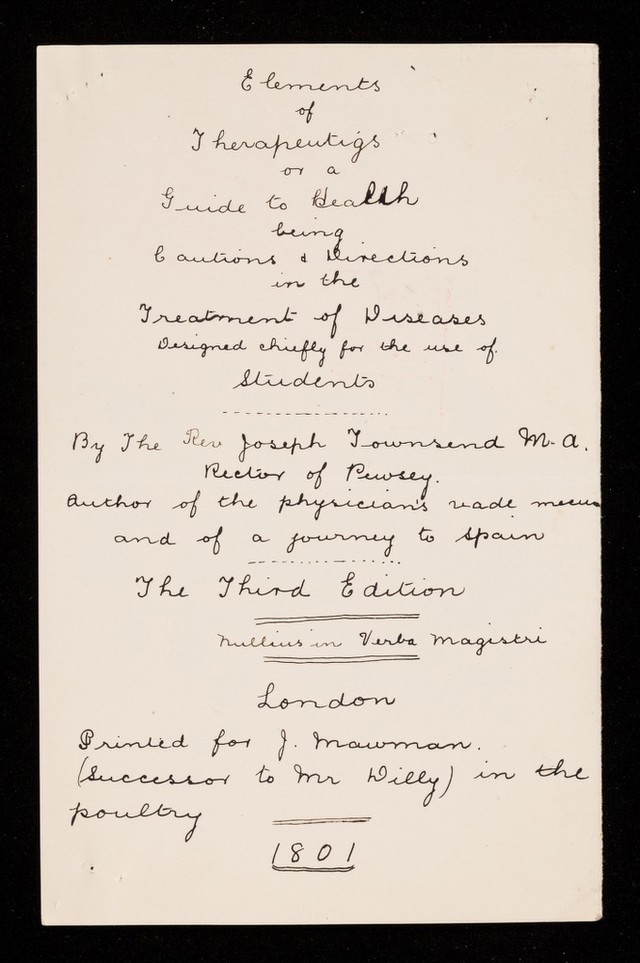 Elements
of
Therapeutigs
or a
Guide to Health
being
Cautions & Directions
in the
Treatment of Diseases
Designed chiefly for the use of
Students
By The Rev Joseph Townsend M.A.
Rector of Pewsey.
Author of the physician's vade mecum
and of a journey to Spain
The Third Edition
Nullius in Verba Magistri
London
Printed for J. Mawman.
(Successor to Mr Dilly) in the
poultry
1801